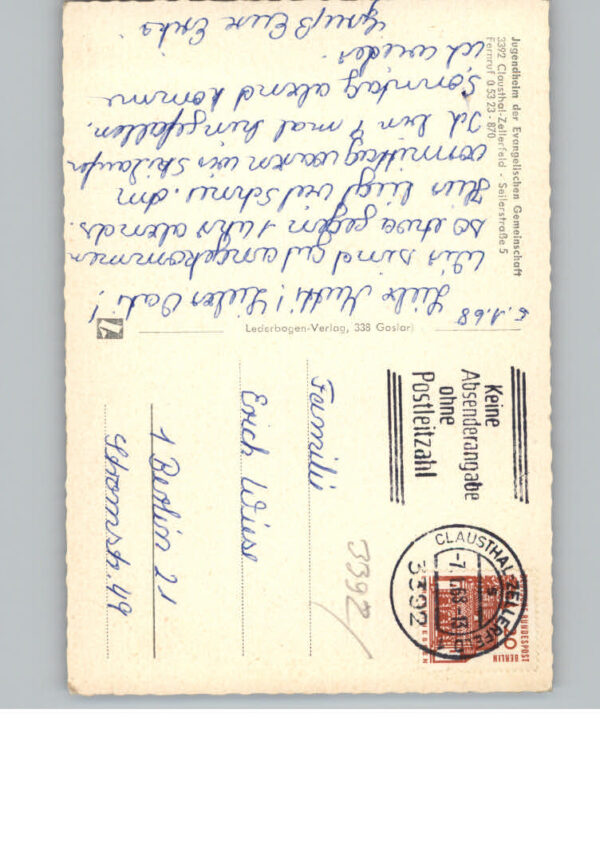 Jugendheim der Evangelischen Gemeinschaft
3392 Clausthal-Zellerfeld - Seilerstraße 5
Fernruf 0 53 23 - 870
6.1.68
Liebe Mutti! Lieber Vati!
Wir sind gut angekommen
so etwa gegen 7 Uhr abends.
Hier liegt viel Schnee. Am
vormittag waren wir Skilaufen
Ich bin mal hingefallen.
Sonntag abend komme
ich wieder.
Gruß Eure Erika
Lederbogen-Verlag, 338 Goslar
Keine
Absenderangabe
ohne
Postleitzahl
CLAUSTHAL-ZELLERFELD
3392
DEUTSCHE BUNDESPOST
BERLIN
3392
Familie
Erich Wiese
1 Berlin 21
Stromstr. 49